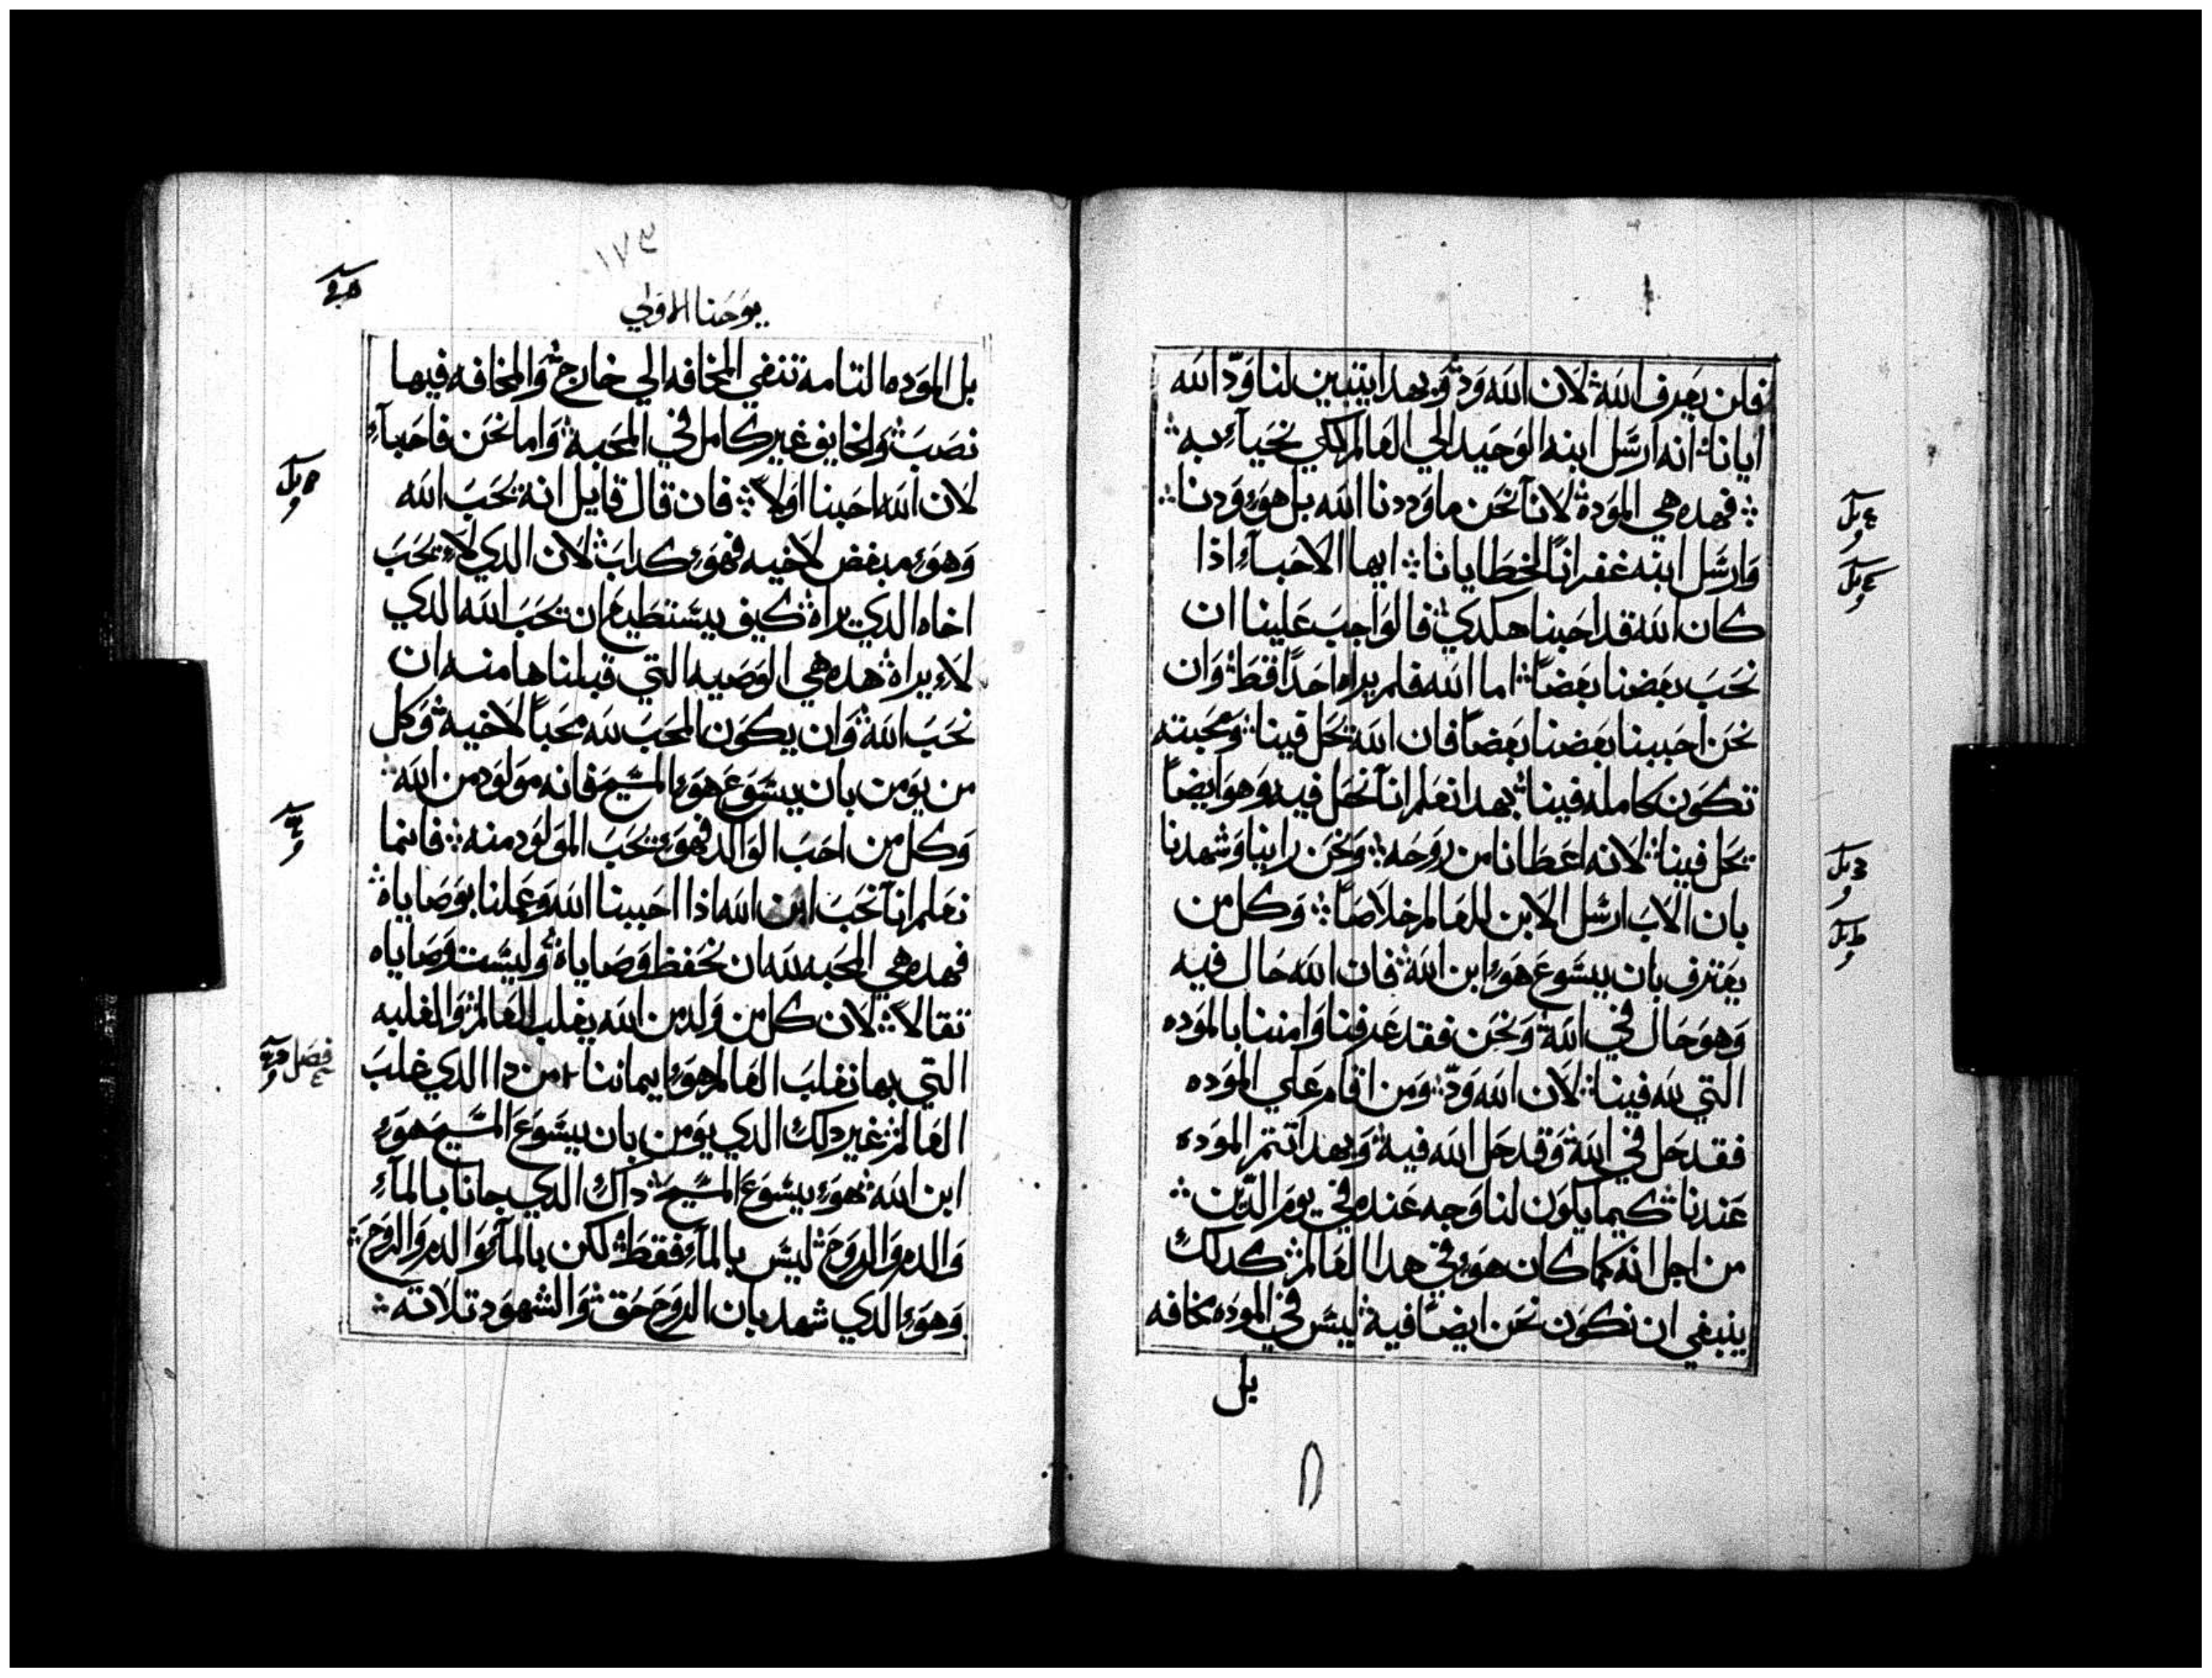 فلن يعرف الله لان الله ود وبهدا يتبين لنا ود الله
ايانا انه ارسل ابنه الوحيد الي العالم لكي نحياء به
فهده هي الموده لاننا نحن ما وددنا الله بل هو ودنا
وارسل ابنه غفرانًا لخطايانا ايها الاحباء اذا
كان الله قد احبنا هكدي فالواجب علينا ان
نحب بعضنا بعضًا اما الله فلم يراه احدًا قط وان
نحن احببنا بعضنا بعضًا فان الله يحل فينا ومحبته
تكون كامله فينا بهدا نعلم اننا نحل فيه وهو ايضًا
يحل فينا لانه اعطانا من روحه ونحن راينا وشهدنا
بان الاب ارسل الابن للعالم خلاصًا وكل من
يعترف بان يسوع هو ابن الله فان الله حال فيه
وهو حال في الله ونحن فقد عرفنا وامننا بالموده
التي لله فينا لان الله ودّ ومن اقام علي الموده
فقد حل في الله وقد حل الله فيه وبهدا تتم الموده
عندنا كيما يكون لنا وجه عنده في يوم الدّين
من اجل انه كما كان هو في هدا العالم كدلك
ينبغي ان نكون نحن ايضًا فيه ليس في الموده مخافه
بل
١٧٣
يوحنا الاولي
بل الموده التامه تنفي المخافه الي خارج والمخافه فيها
نصب والخايف غير كامل في المحبه واما نحن فاحباء
لان الله احبنا اولاً فان قال قايل انه يحب الله
وهو مبغض لاخيه فهو كداب لان الدي لا يحب
اخاه الدي يراه كيف يستطيع ان يحب الله الدي
لا يراه هده هي الوصيه التي قبلناها منه ان
نحب الله وان يكون المحب لله محبًا لاخيه وكل
من يومن بان يسوع هو المسيح فانه مولود من الله
وكل من احب الوالد فهو يحب المولود منه فانما
نعلم اننا نحب ابن الله اذا احببنا الله وعملنا بوصاياه
فهده هي المحبه لله ان نحفظ وصاياه وليست وصاياه
تقالاً لان كل من ولد من الله يغلب العالم والغلبه
التي بها نغلب العالم هو ايماننا من دا الدي غلب
العالم غير دلك الدي يومن بان يسوع المسيح هو
ابن الله هو يسوع المسيح داك الدي جانا بالماء
والدم والروح ليس بالماء فقط لكن بالماء والدم والروح
وهو الدي شهد بان الروح حق والشهود تلاته
فصل